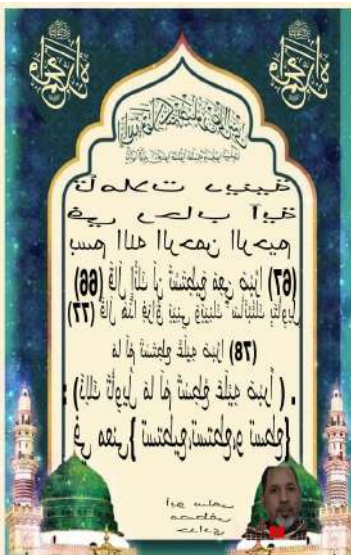 تأملات دينية
في رحاب آية
بسم الله الرحمن الرحيم
(66) قَالَ إِنَّكَ لَن تَسْتَطِيعَ مَعِيَ صَبْرًا (67)
(77) قَالَ هَٰذَا فِرَاقُ بَيْنِي وَبَيْنِكَ سَأُنَبِّئُكَ بِتَأْوِيلِ
مَا لَمْ تَسْتَطِع عَّلَيْهِ صَبْرًا (78)
: (ذَٰلِكَ تَأْوِيلُ مَا لَمْ تَسْطِع عَّلَيْهِ صَبْرًا ) .
في معنى {تستطيع،تستطع،و تسطع}
أبو سلمى
مصطفى
حدادي